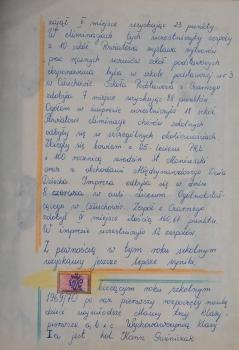 zajął I miejsce uzyskując 23 punkty.
W eliminacjach tych uczestniczyły zespoły
z 10 szkół. Kwiatowa wystawa wytworów
prac ręcznych uczniów szkół podstawowych
eksponowana była w szkole podstawowej nr 3
w Szkoła Podstawowa z Czarnego
zdobyła 7 miejsce uzyskując 88 punktów
Ogółem w imprezie uczestniczyło 11 szkół
eliminacje chórów szkolnych
odbyły się w szczególnych okolicznościach
Zbiegły się bowiem z 25-leciem PRL
i 100 rocznicą urodzin St.
oraz z obchodami Międzynarodowego Dnia
Dziecka. Impreza odbyła się w dniu
8 czerwca w auli Liceum Ogólnokształ-
cącego w Zespół z Czarnego
zdobył IV miejsce ilością 160,64 punktu.
W imprezie uczestniczyło 12 zespołów
Z pewnością w tym roku szkolnym
uzyskamy jeszcze lepsze wyniki.
bieżącym roku szkolnym
1969/70 po raz pierwszy rozpoczęły naukę
dzieci najmłodsze. Mamy trzy klasy
pierwsze a, b i c. Wychowawczynią klasy
Ia jest kol.